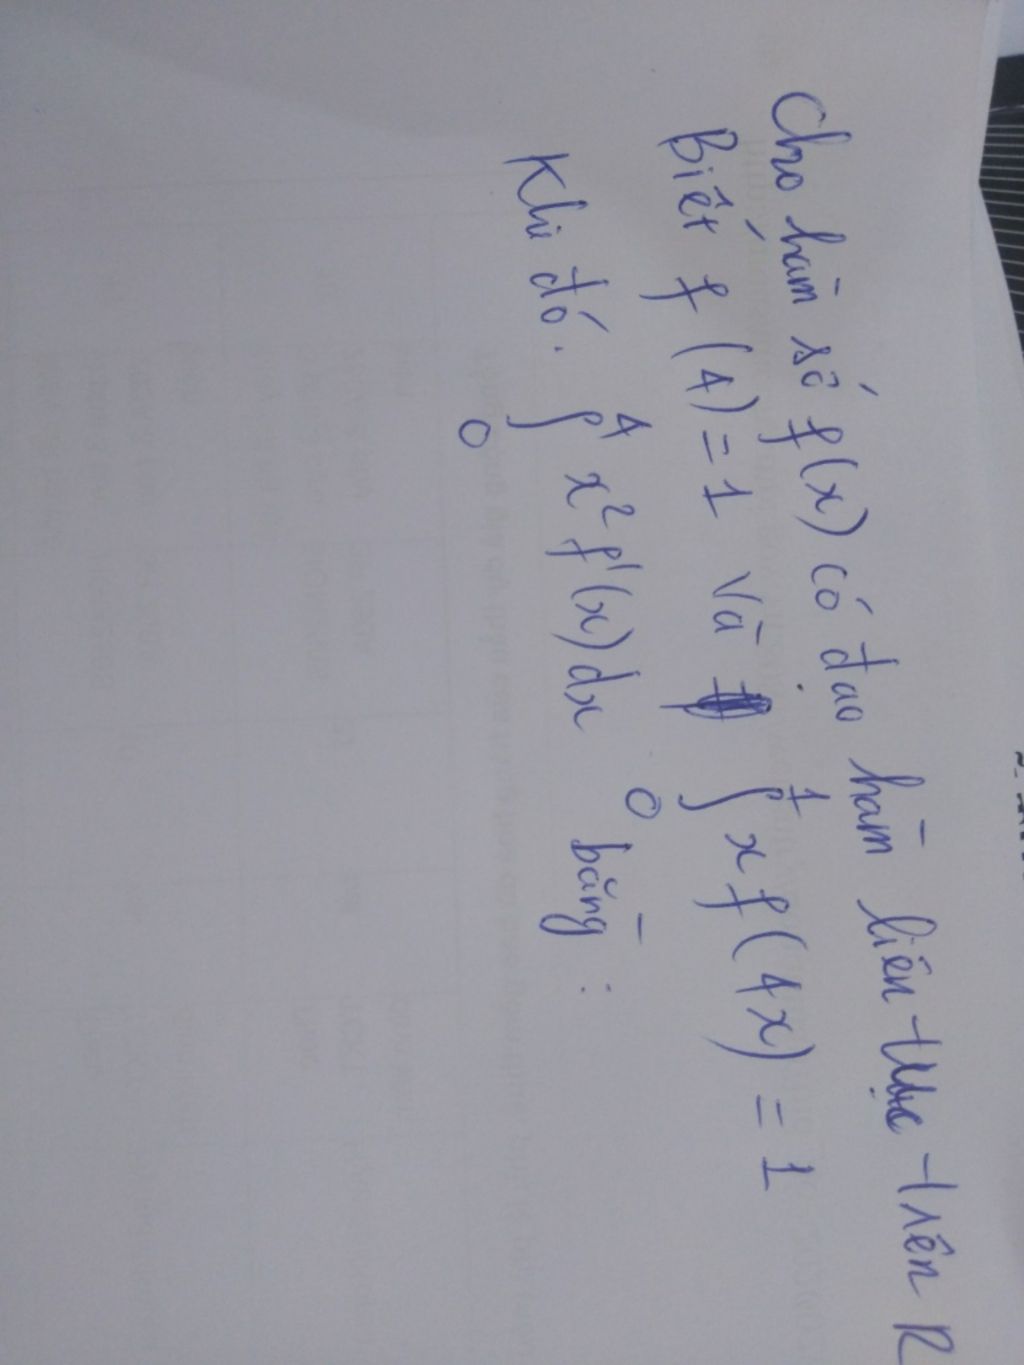 Cho hàm số f(x) có đạo hàm liên tục trên R
Biết f(4) = 1 và ∫₀¹ x f(4x) = 1
Khi đó. ∫₀⁴ x² f'(x) dx bằng :